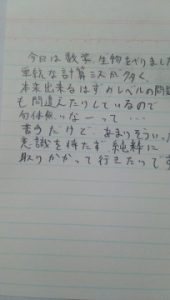 今日は数学、生物をやりました
単純な計算ミスが多く、
本来出来るはずのレベルの問題
も間違えたりしているので
勿体無いなーって…
書きたけど、あまりそういった
意識を持たず、純粋に
取りかかって行きたいです